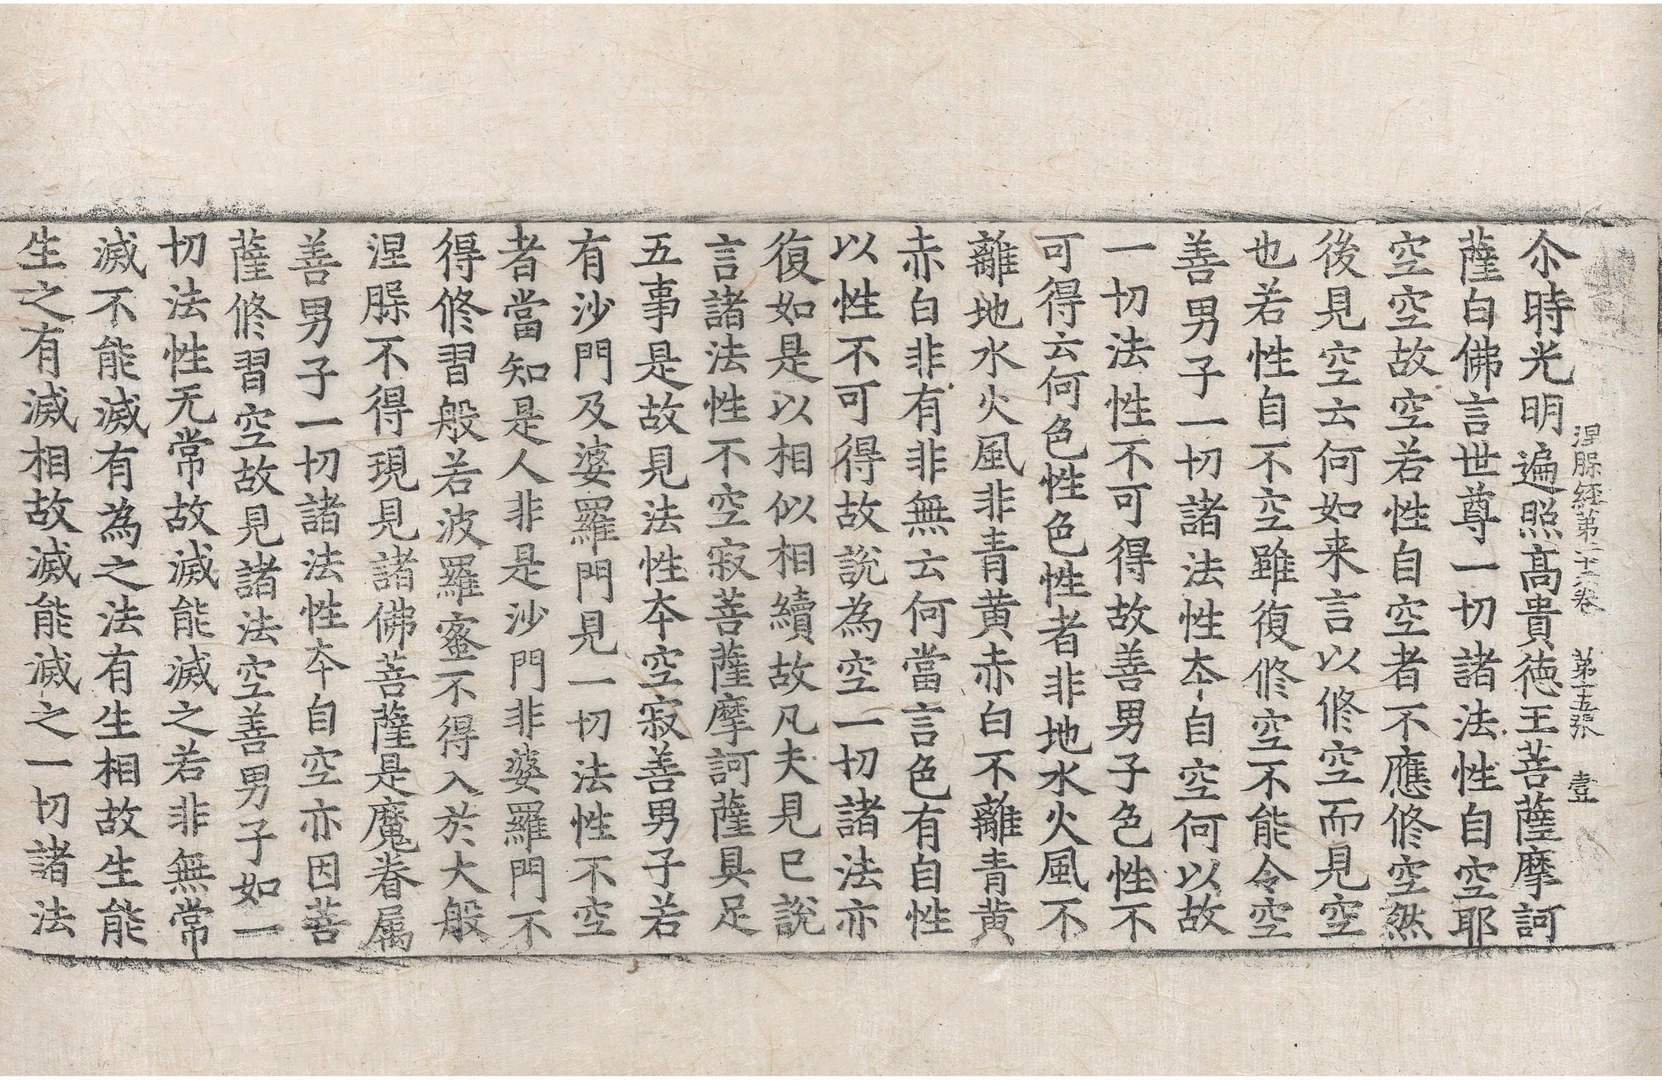 涅槃經第二十六卷 第十五張 壹
尒時光明遍照髙貴徳王菩薩摩訶
薩白佛言世尊一切諸法性自空耶
空空故空若性自空者不應修空然
後見空云何如来言以修空而見空
也若性自不空雖復修空不能令空
善男子一切諸法性夲自空何以故
一切法性不可得故善男子色性不
可得云何色性色性者非地水火風不
離地水火風非青黄赤白不離青黄
赤白非有非無云何當言色有自性
以性不可得故說為空一切諸法亦
復如是以相似相續故凡夫見已說
言諸法性不空寂菩薩摩訶薩具足
五事是故見法性夲空寂善男子若
有沙門及婆羅門見一切法性不空
者當知是人非是沙門非婆羅門不
得修習般若波羅蜜不得入於大般
涅槃不得現見諸佛菩薩是魔眷属
善男子一切諸法性夲自空亦因菩
薩修習空故見諸法空善男子如一
切法性无常故滅能滅之若非無常
滅不能滅有為之法有生相故生能
生之有滅相故滅能滅之一切諸法